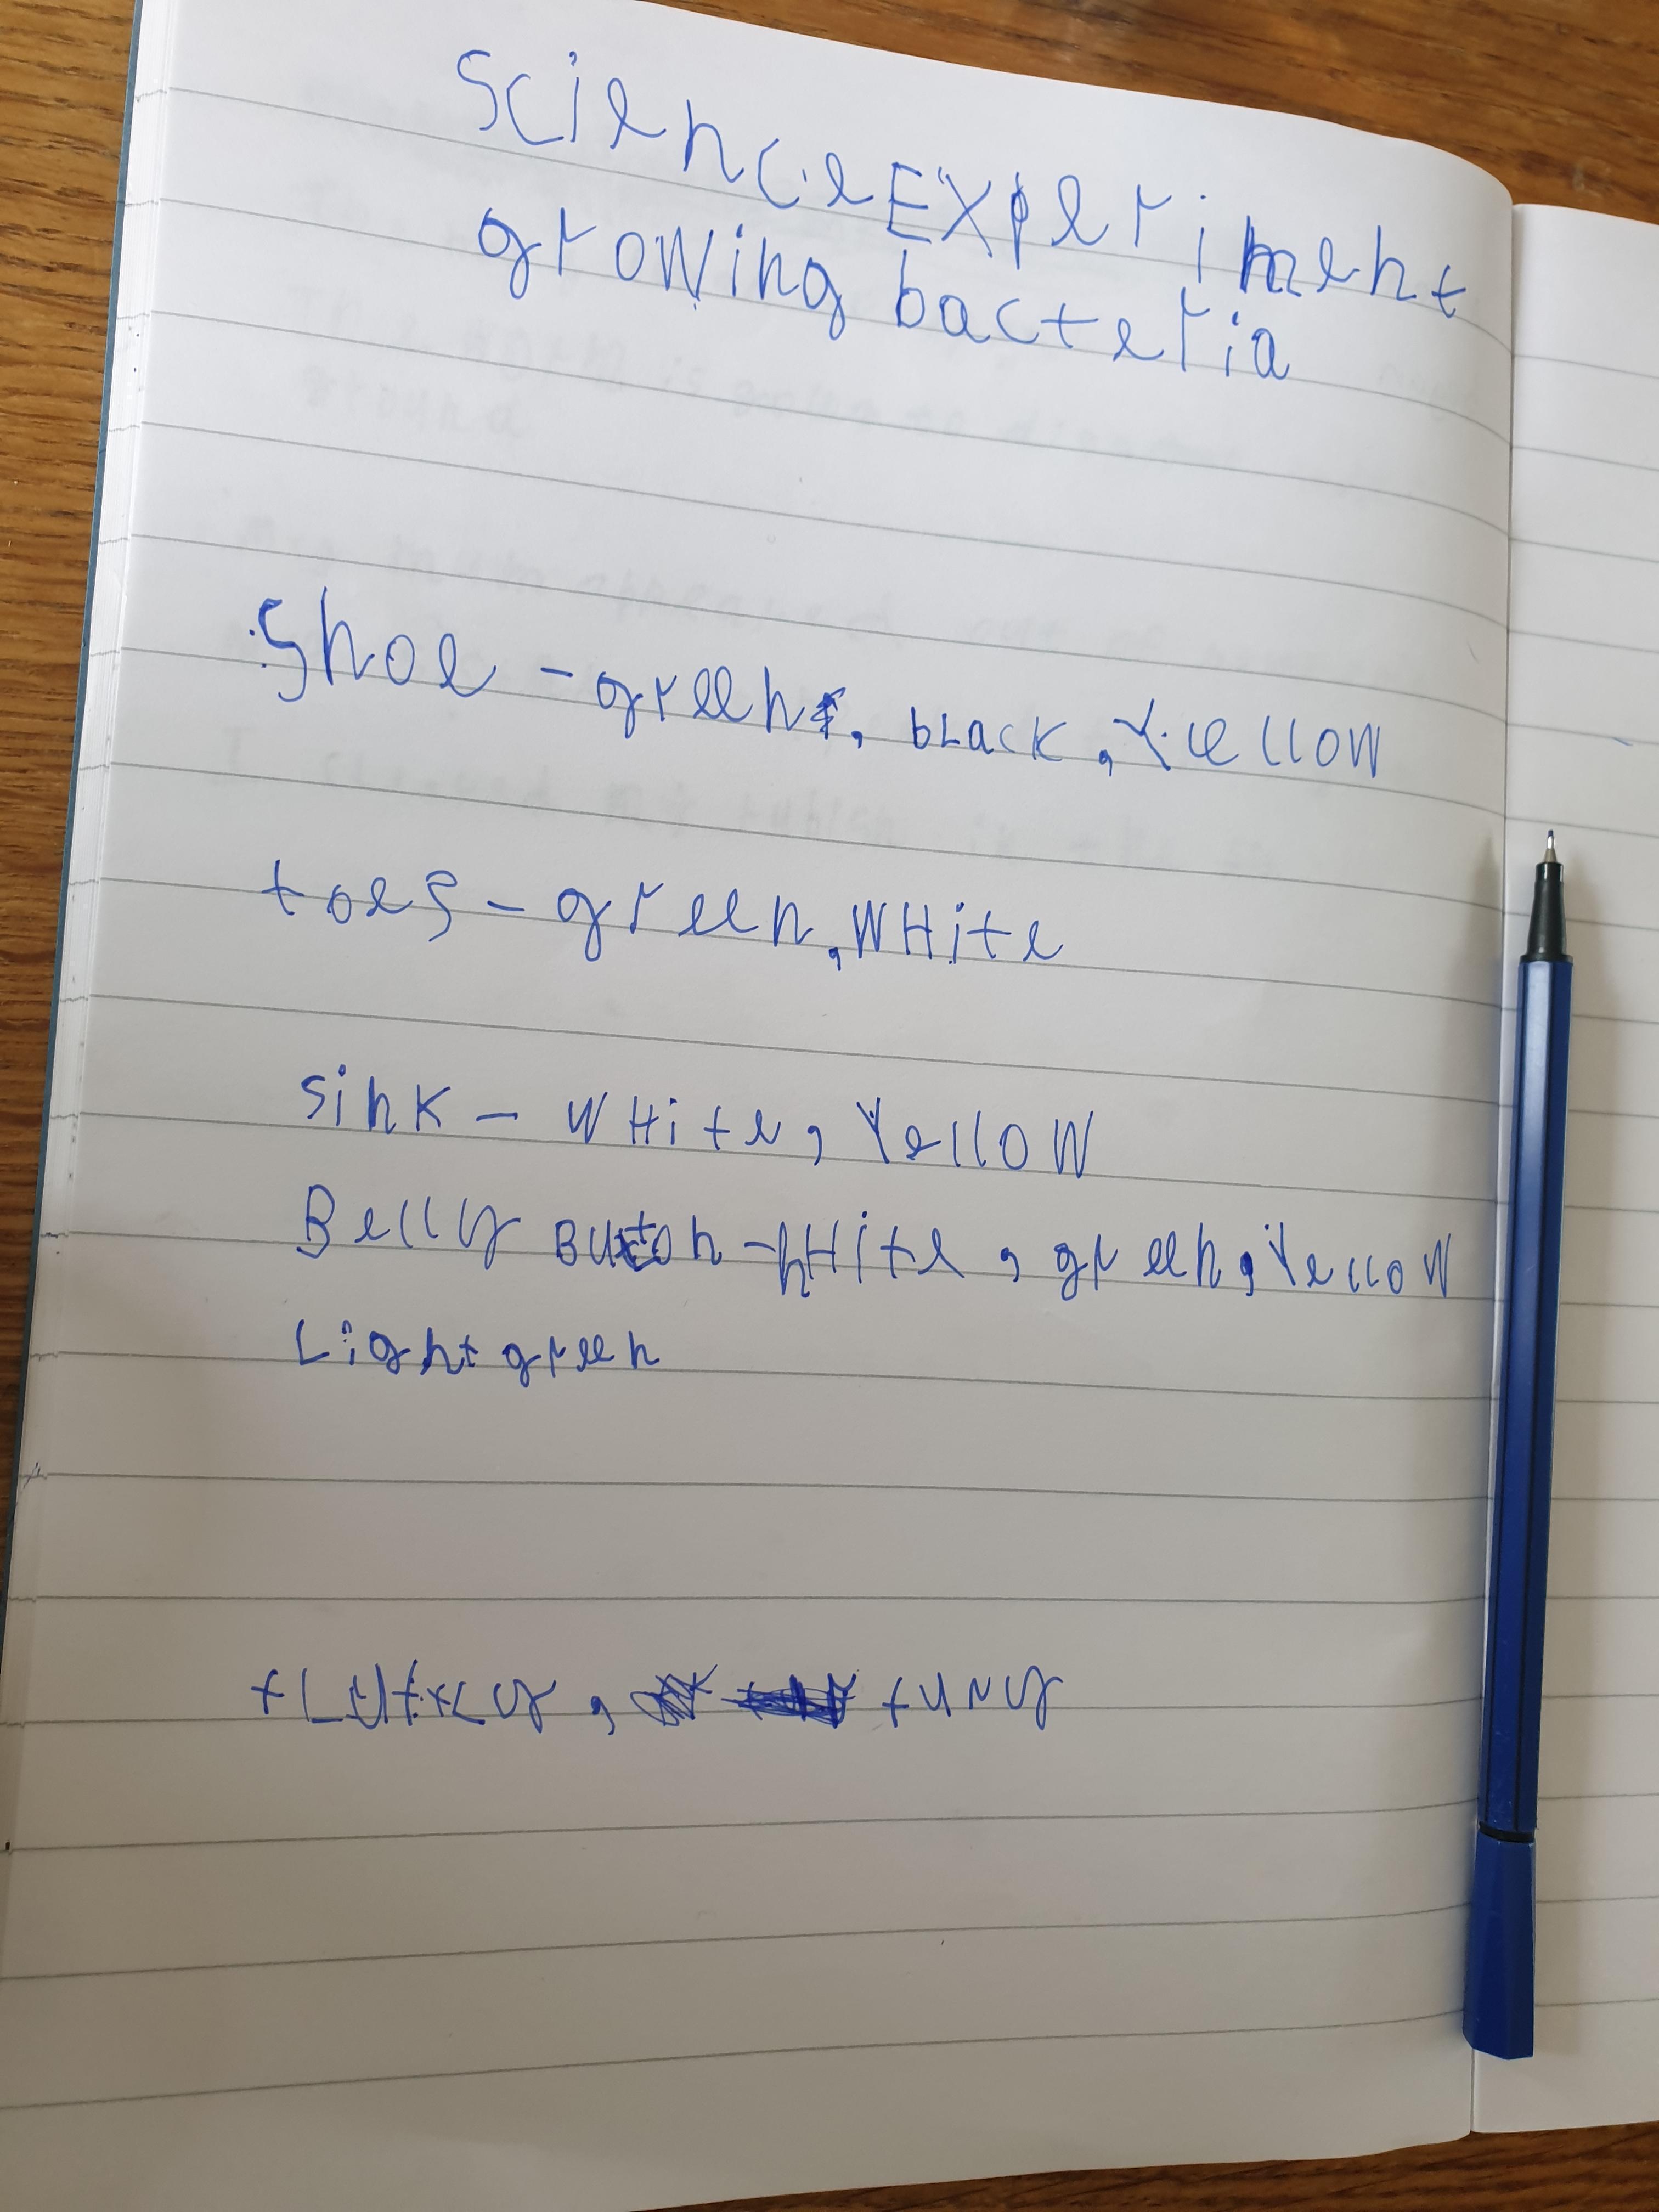 science EXperiment
growing bacteria
Shoe - green, bLack, Yellow
toes - green, WHite
sink - WHite, YelloW
Belly Button - WHite, green, YelloW
Light green